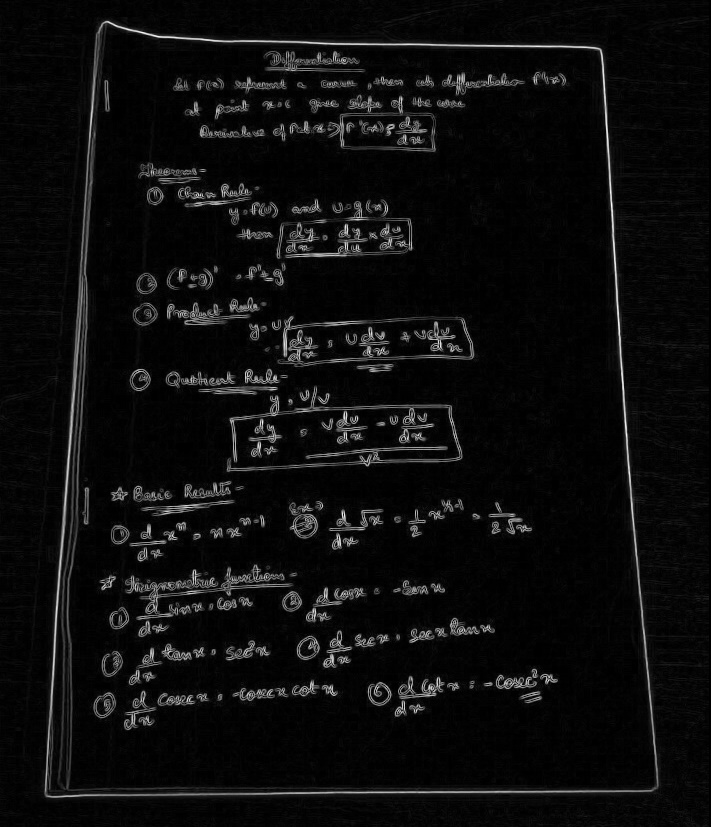 Differentiation
Let f(x) represent a curve, then its differentiation f'(x)
at point x=c gives slope of the curve
Derivative of f at x => f'(x) = dy/dx
Theorems-
① Chain Rule-
y=f(u) and u=g(x)
then dy/dx = dy/du × du/dx
② (f+g)' = f'+g'
③ Product Rule-
y=uv
dy/dx = u dv/dx + v du/dx
④ Quotient Rule-
y = u/v
dy/dx = (v du/dx - u dv/dx)/v²
☆ Basic Results-
① d/dx xⁿ = n xⁿ⁻¹ d/dx √x = 1/2 x^(1/2-1) = 1/(2√x)
☆ Trignometric functions-
① d/dx sinx = cosx ② d/dx cosx = -sinx
③ d/dx tanx = sec²x ④ d/dx secx = secx tanx
⑤ d/dx cosecx = -cosecx cotx ⑥ d/dx cotx = -cosec²x